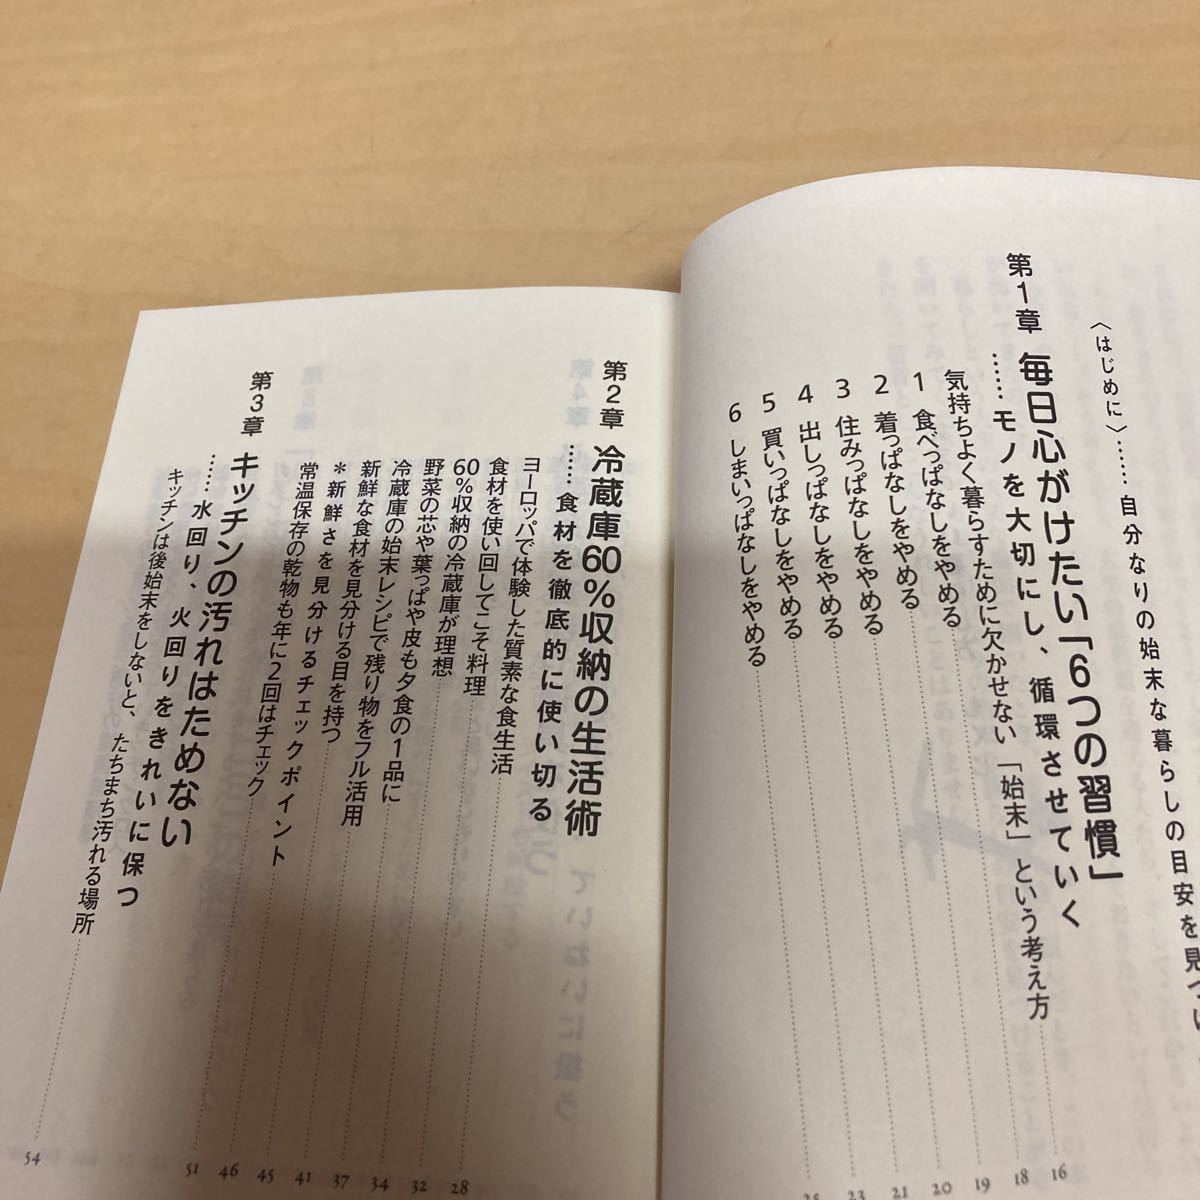 〈はじめに〉……自分なりの始末な暮らしの目安を見つけ
第1章 毎日心がけたい「6つの習慣」
……モノを大切にし、循環させていく
気持ちよく暮らすために欠かせない「始末」という考え方 16
1 食べっぱなしをやめる 18
2 着っぱなしをやめる 19
3 住みっぱなしをやめる 20
4 出しっぱなしをやめる 21
5 買いっぱなしをやめる 23
6 しまいっぱなしをやめる 25
第2章 冷蔵庫60%収納の生活術
……食材を徹底的に使い切る
ヨーロッパで体験した質素な食生活 28
食材を使い回してこそ料理 32
60%収納の冷蔵庫が理想 34
野菜の芯や葉っぱや皮も夕食の1品に 37
冷蔵庫の始末レシピで残り物をフル活用 41
新鮮な食材を見分ける目を持つ 45
*新鮮さを見分けるチェックポイント 46
常温保存の乾物も年に2回はチェック 51
第3章 キッチンの汚れはためない
……水回り、火回りをきれいに保つ
キッチンは後始末をしないと、たちまち汚れる場所 54